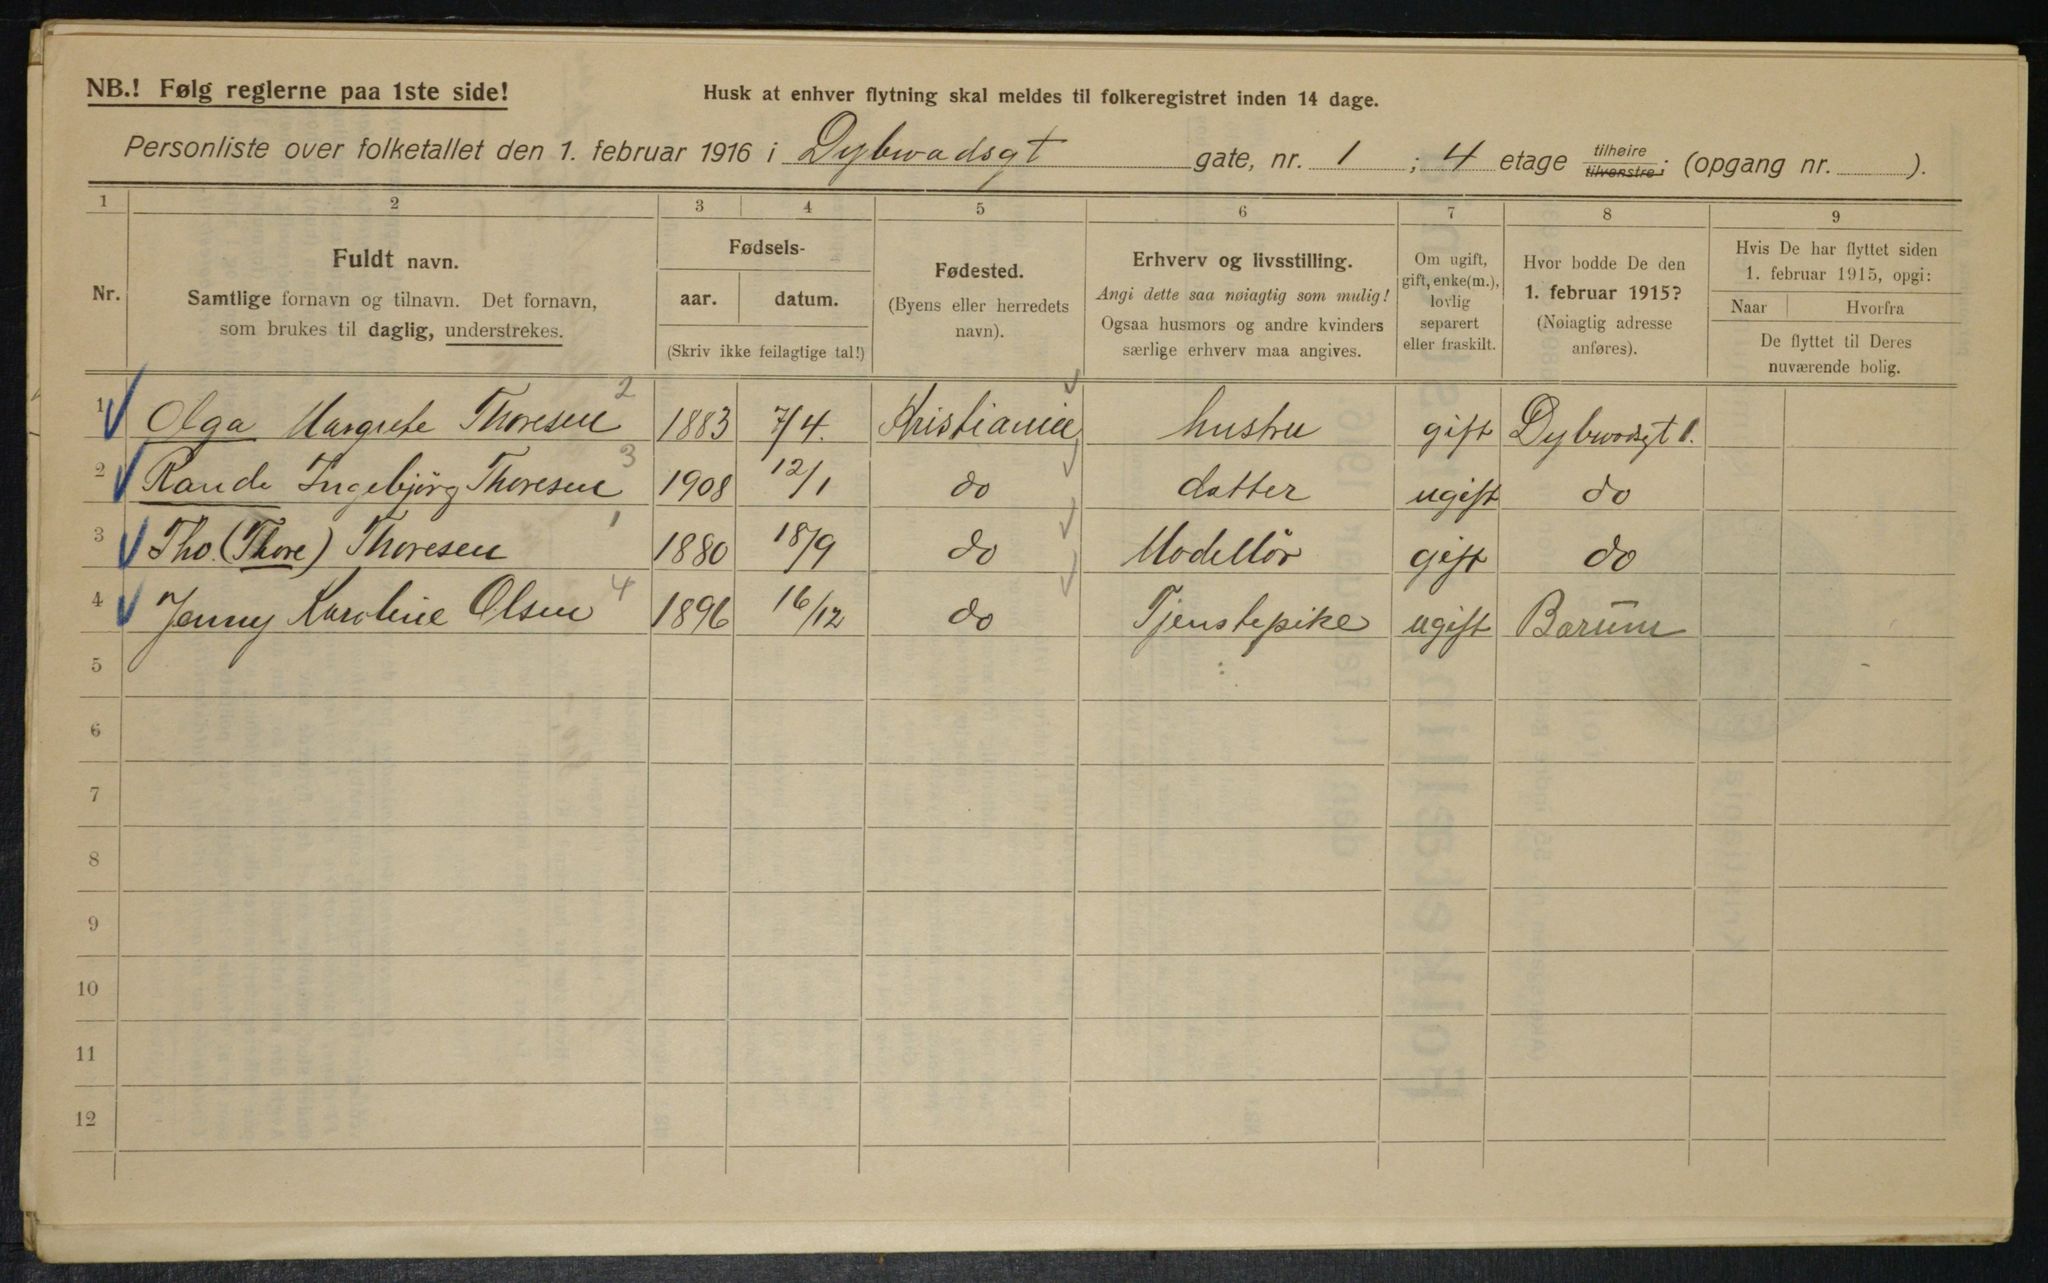 NB.! Følg reglerne paa 1ste side!
Husk at enhver flytning skal meldes til folkeregistret inden 14 dage.
Personliste over folketallet den 1. februar 1916 i Dybwadsgt gate, nr. 1 ; 4 etage tilhøire tilvenstre; (opgang nr. ).
1 2 3 4 5 6 7 8 9
Nr.
Fuldt navn.
Samtlige fornavn og tilnavn. Det fornavn,
som brukes til daglig, understrekes.
Fødsels-
aar. datum.
(Skriv ikke feilagtige tal!)
Fødested.
(Byens eller herredets
navn).
Erhverv og livsstilling.
Angi dette saa nøiagtig som mulig!
Ogsaa husmors og andre kvinders
særlige erhverv maa angives.
Om ugift,
gift, enke(m.),
lovlig
separert
eller fraskilt.
Hvor bodde De den
1. februar 1915?
(Nøiagtig adresse
anføres).
Hvis De har flyttet siden
1. februar 1915, opgi:
Naar Hvorfra
De flyttet til Deres
nuværende bolig.
1 Olga Margrete Thoresen 2 1883 7/4. Kristiania hustru gift Dybwadsgt 1.
2 Rande Ingebjørg Thoresen 3 1908 12/1 do datter ugift do
3 Tho. (Thore) Thoresen 1 1880 18/9 do Modellør gift do
4 Jenny Karoline Olsen 4 1896 16/12 do Tjenstepike ugift Bærum
5
6
7
8
9
10
11
12